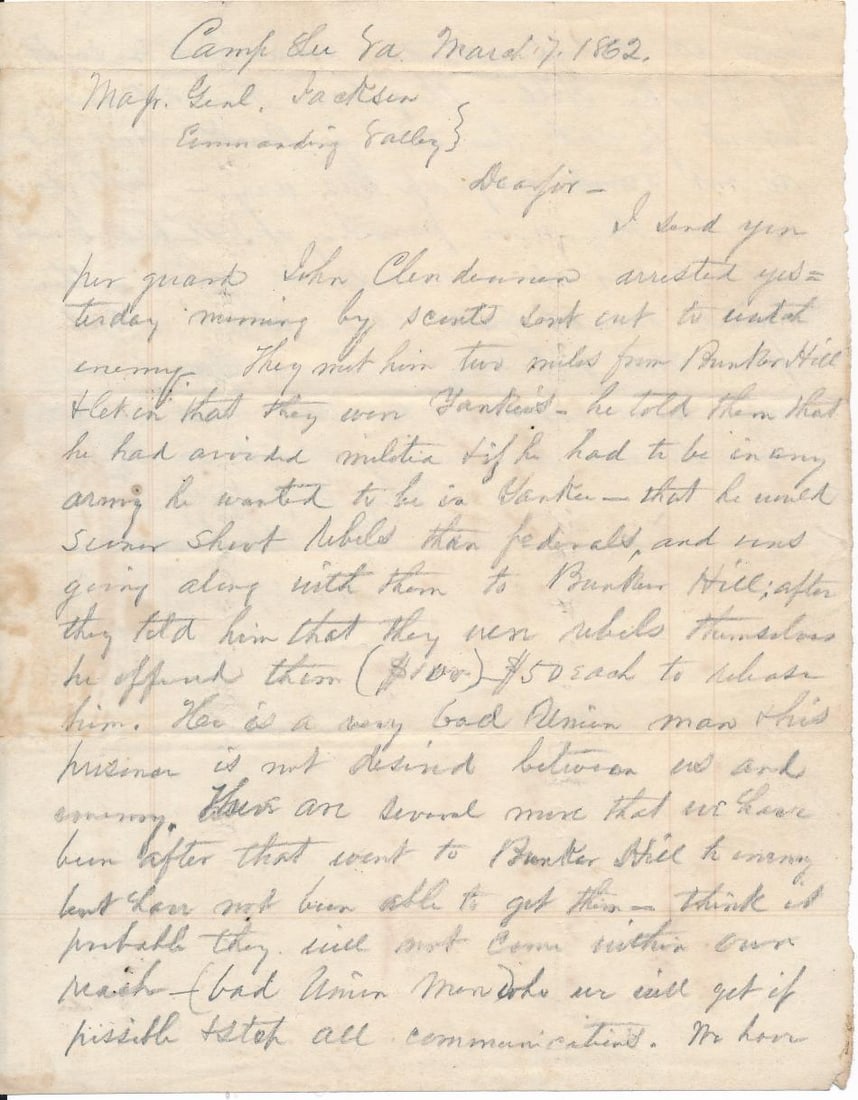 Camp Lee Va. March 7. 1862.
Majr. Genl. Jackson
Commanding Valley}
Dear sir –
I send you
per guard John Clendennen arrested yes=
terday morning by scouts sent out to watch
enemy. They met him two miles from Bunker Hill
& let on that they were Yankees – he told them that
he had avoided militia & if he had to be in any
army he wanted to be in Yankee – that he would
sooner shoot rebels than federals, and was
going along with them to Bunker Hill; after
they told him that they were rebels themselves
he offered them ($100) $50 each to release
him. He is a very bad Union man & his
presence is not desired between us and
enemy. There are several more that we have
been after that went to Bunker Hill to enemy
but have not been able to get them – think it
probable they will not come within our
reach – (bad Union Men) who we will get if
possible & stop all communications. We have